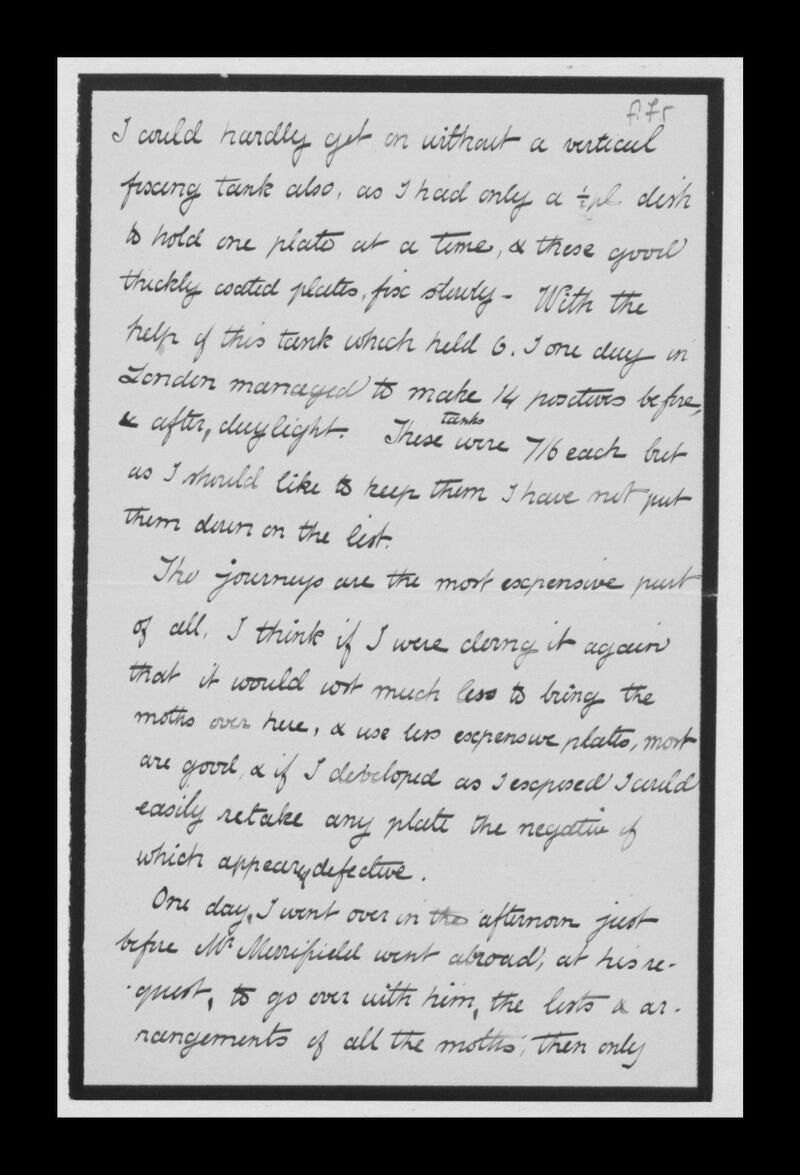 f.7r
I could hardly get on without a vertical
fixing tank also, as I had only a ½pl dish
to hold one plate at a time, & these good
thickly coated plates, fix slowly - With the
help of this tank which held 6. I one day in
London managed to make 14 positives before,
& after, daylight. These tanks were 7/6 each but
as I should like to keep them I have not put
them down on the list.
The journeys are the most expensive part
of all. I think if I were doing it again
that it would cost much less to bring the
moths over here, & use less expensive plates, most
are good, & if I developed as I exposed I could
easily retake any plate the negative of
which appeared defective.
One day, I went over in the afternoon just
before Mr Merrifield went abroad, at his re-
quest, to go over with him, the lists & ar-
rangements of all the moths, then only